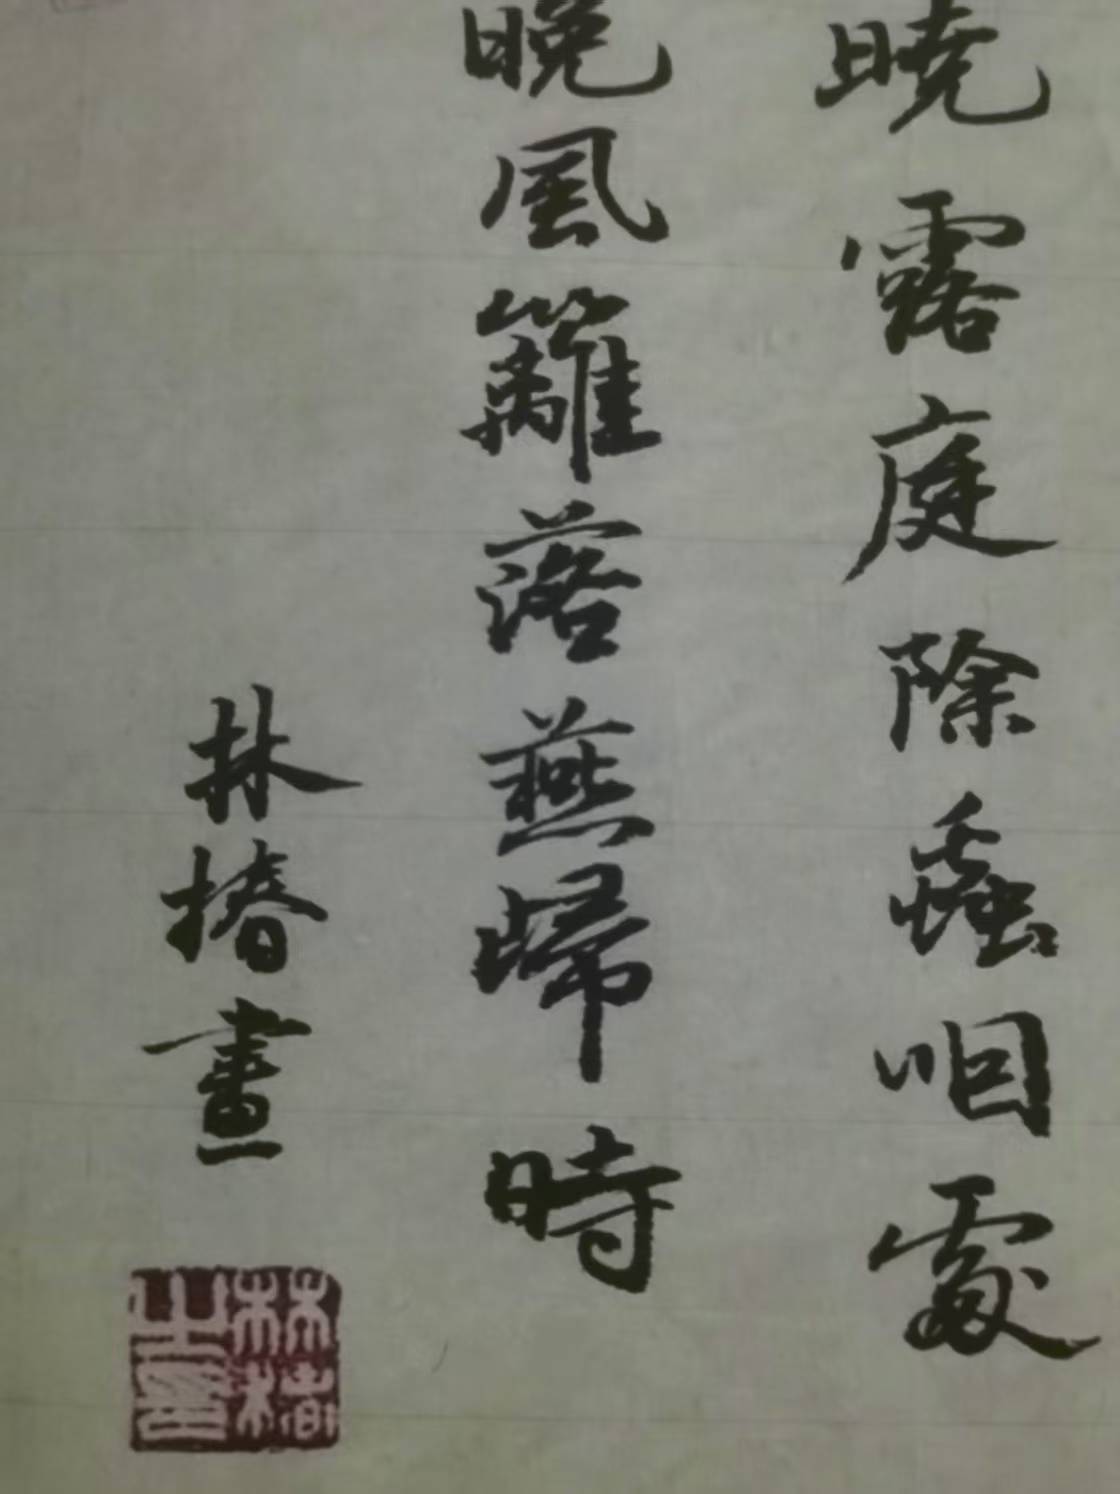 曉露庭除蟲咽處
晚風籬落燕歸時
林椿畫
林椿之印